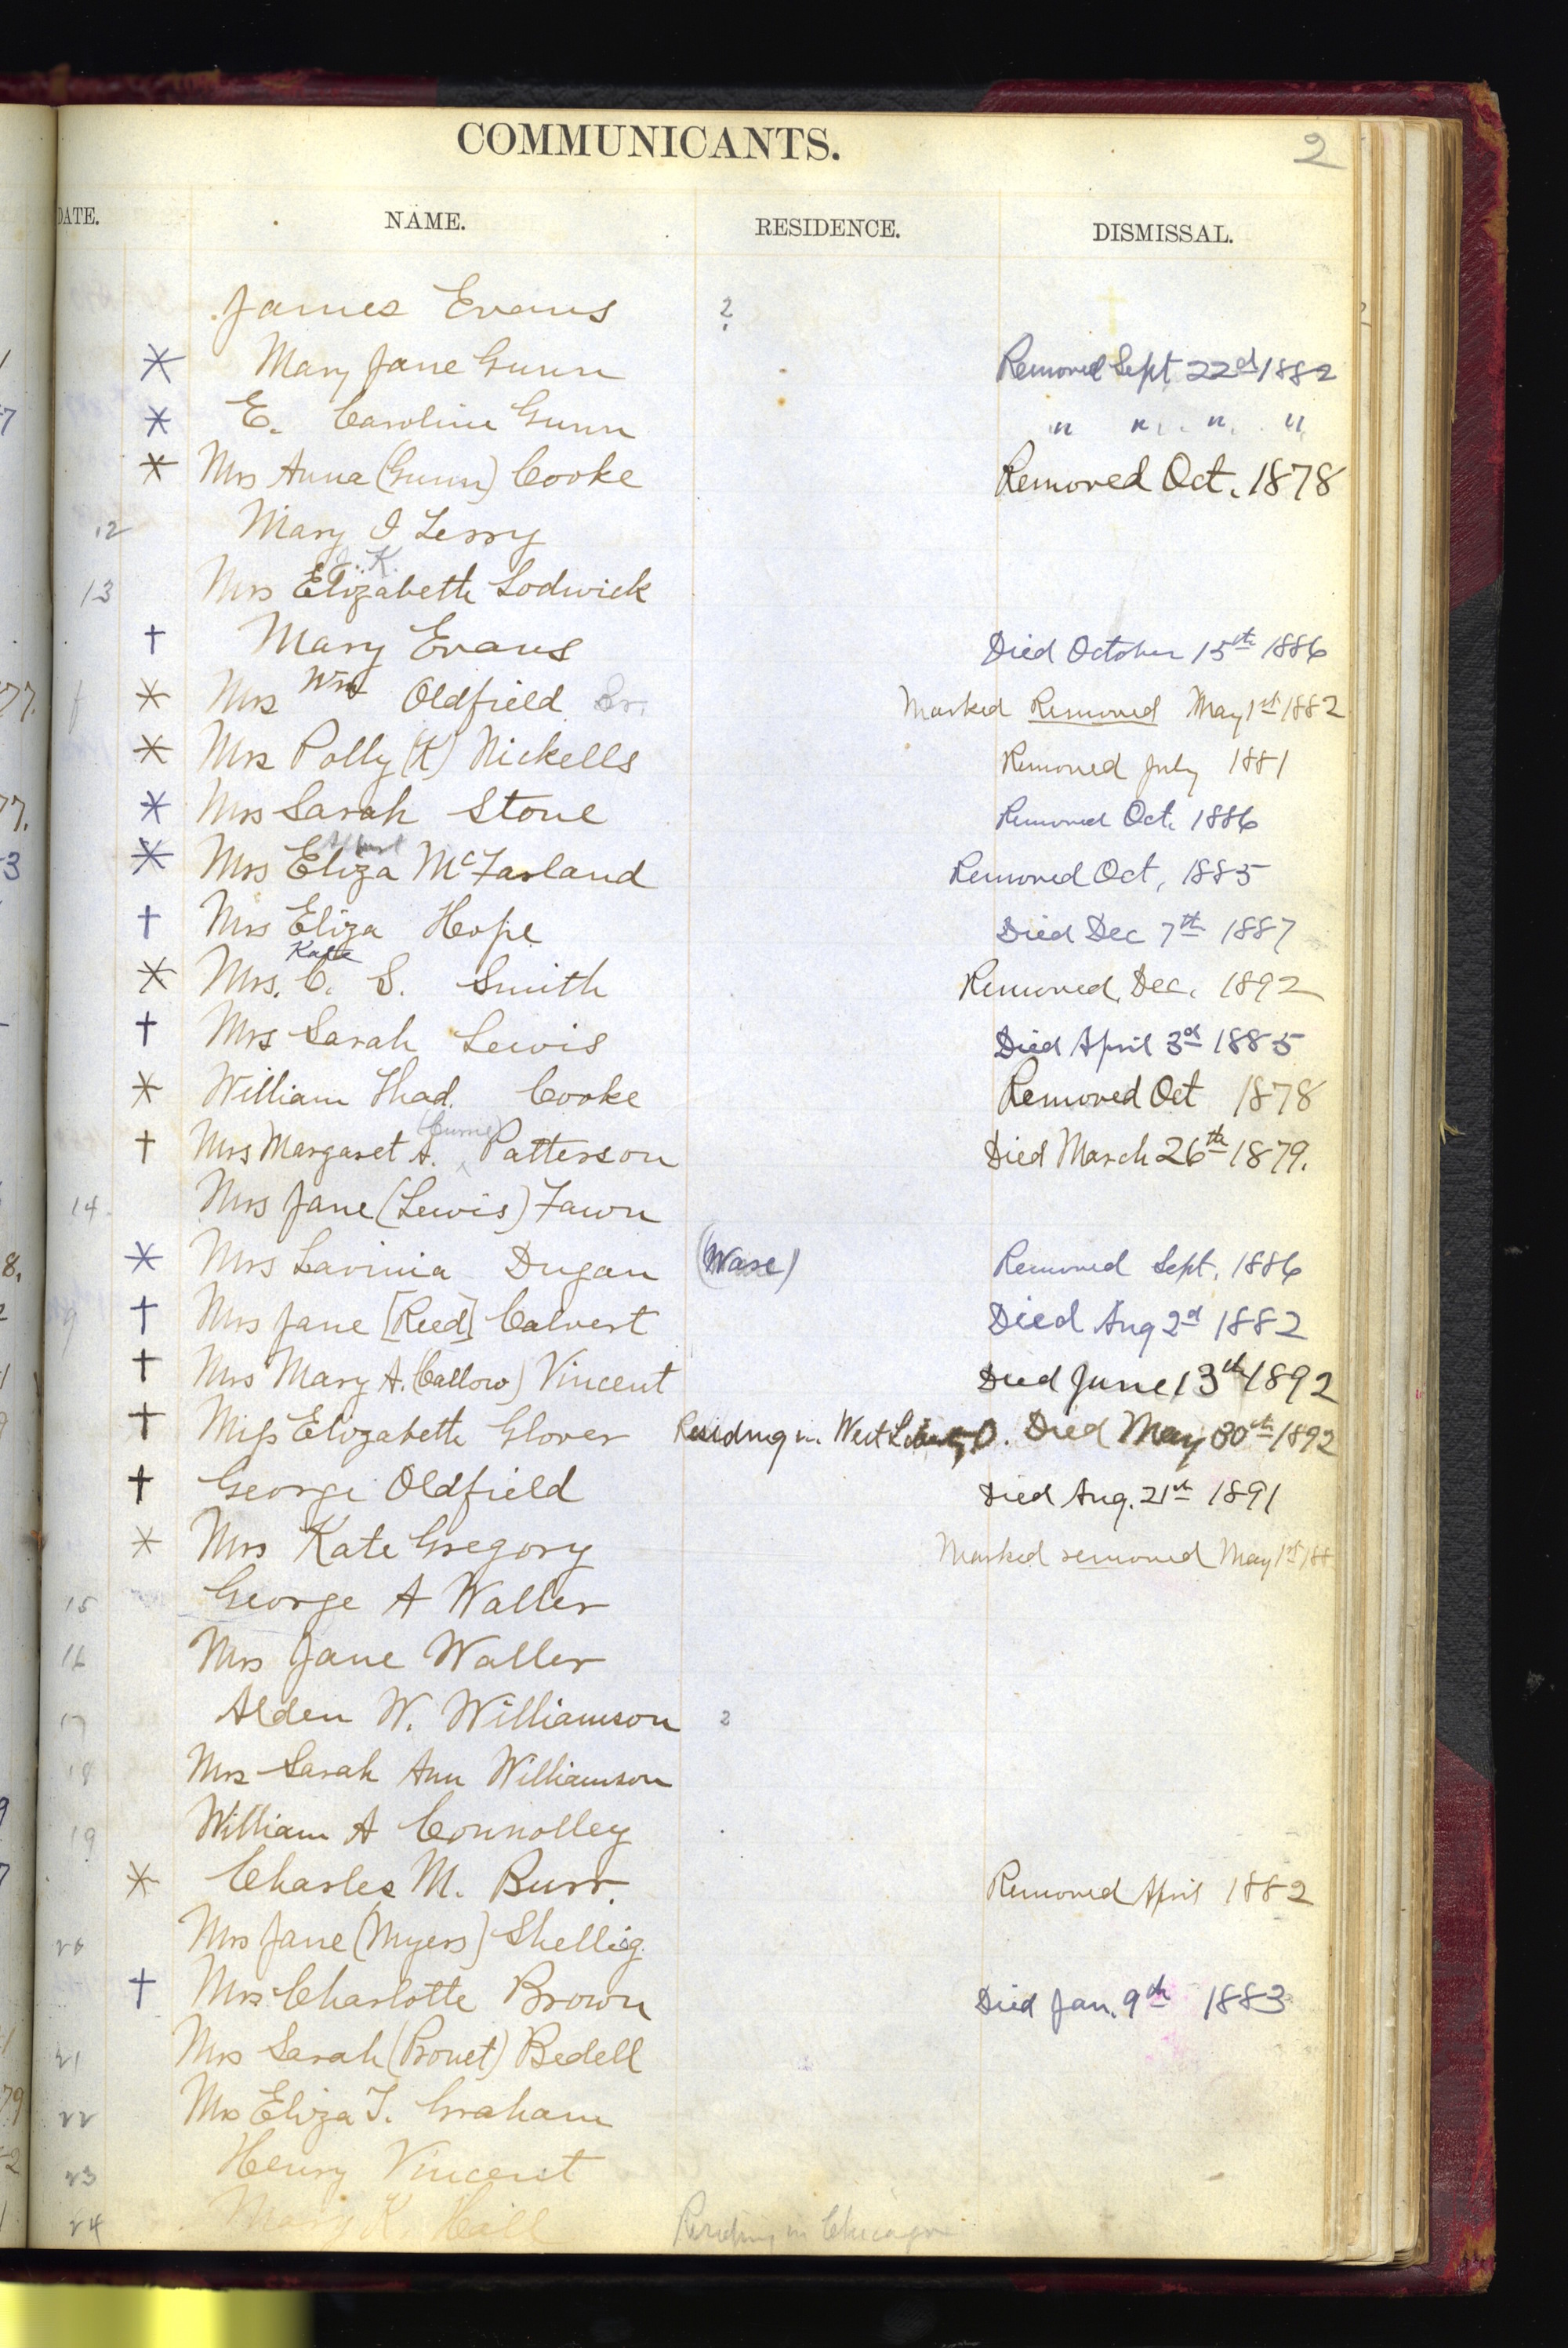 COMMUNICANTS. 2
DATE. NAME. RESIDENCE. DISMISSAL.
James Evans ?
* Mary Jane Gunn Removed Sept 22d 1882
* E. Caroline Gunn " " " "
* Mrs Anna (Gunn) Cooke Removed Oct. 1878
12 Mary I Terry
J. K.
13 Mrs Elizabeth Lodwick
† Mary Evans Died October 15th 1886
* Mrs Wm Oldfield Sr. Marked Removed May 1st 1882
* Mrs Polly (K) Nickells Removed July 1881
* Mrs Sarah Stone Removed Oct. 1886
* Mrs Eliza McFarland Removed Oct, 1885
† Mrs Eliza Hope Died Dec 7th 1887
Kate
* Mrs. C. S. Smith Removed, Dec. 1892
† Mrs Sarah Lewis Died April 3d 1885
* William Thad. Cooke Removed Oct 1878
† Mrs Margaret A. Patterson Died March 26th 1879.
14 Mrs Jane (Lewis) Fawn
* Mrs Lavinia Dugan (Ware) Removed Sept. 1886
† Mrs Jane [Reed] Calvert Died Aug 2d 1882
† Mrs Mary A. (Callow) Vincent Died June 13th 1892
† Miss Elizabeth Glover Residing in West Liberty O. Died May 30th 1892
† George Oldfield Died Aug. 21st 1891
* Mrs Kate Gregory Marked removed May 1st 188
15 George A Waller
16 Mrs Jane Waller
17 Alden W. Williamson ?
18 Mrs Sarah Ann Williamson
19 William A Connolley
* Charles M. Burr. Removed April 1882
20 Mrs Jane (Myers) Shellig
† Mrs Charlotte Brown Died Jan. 9th 1883
21 Mrs Sarah (Prouet) Bedell
22 Mrs Eliza T. Graham
23 Henry Vincent
24 Mary K. Hall Residing in Chicago